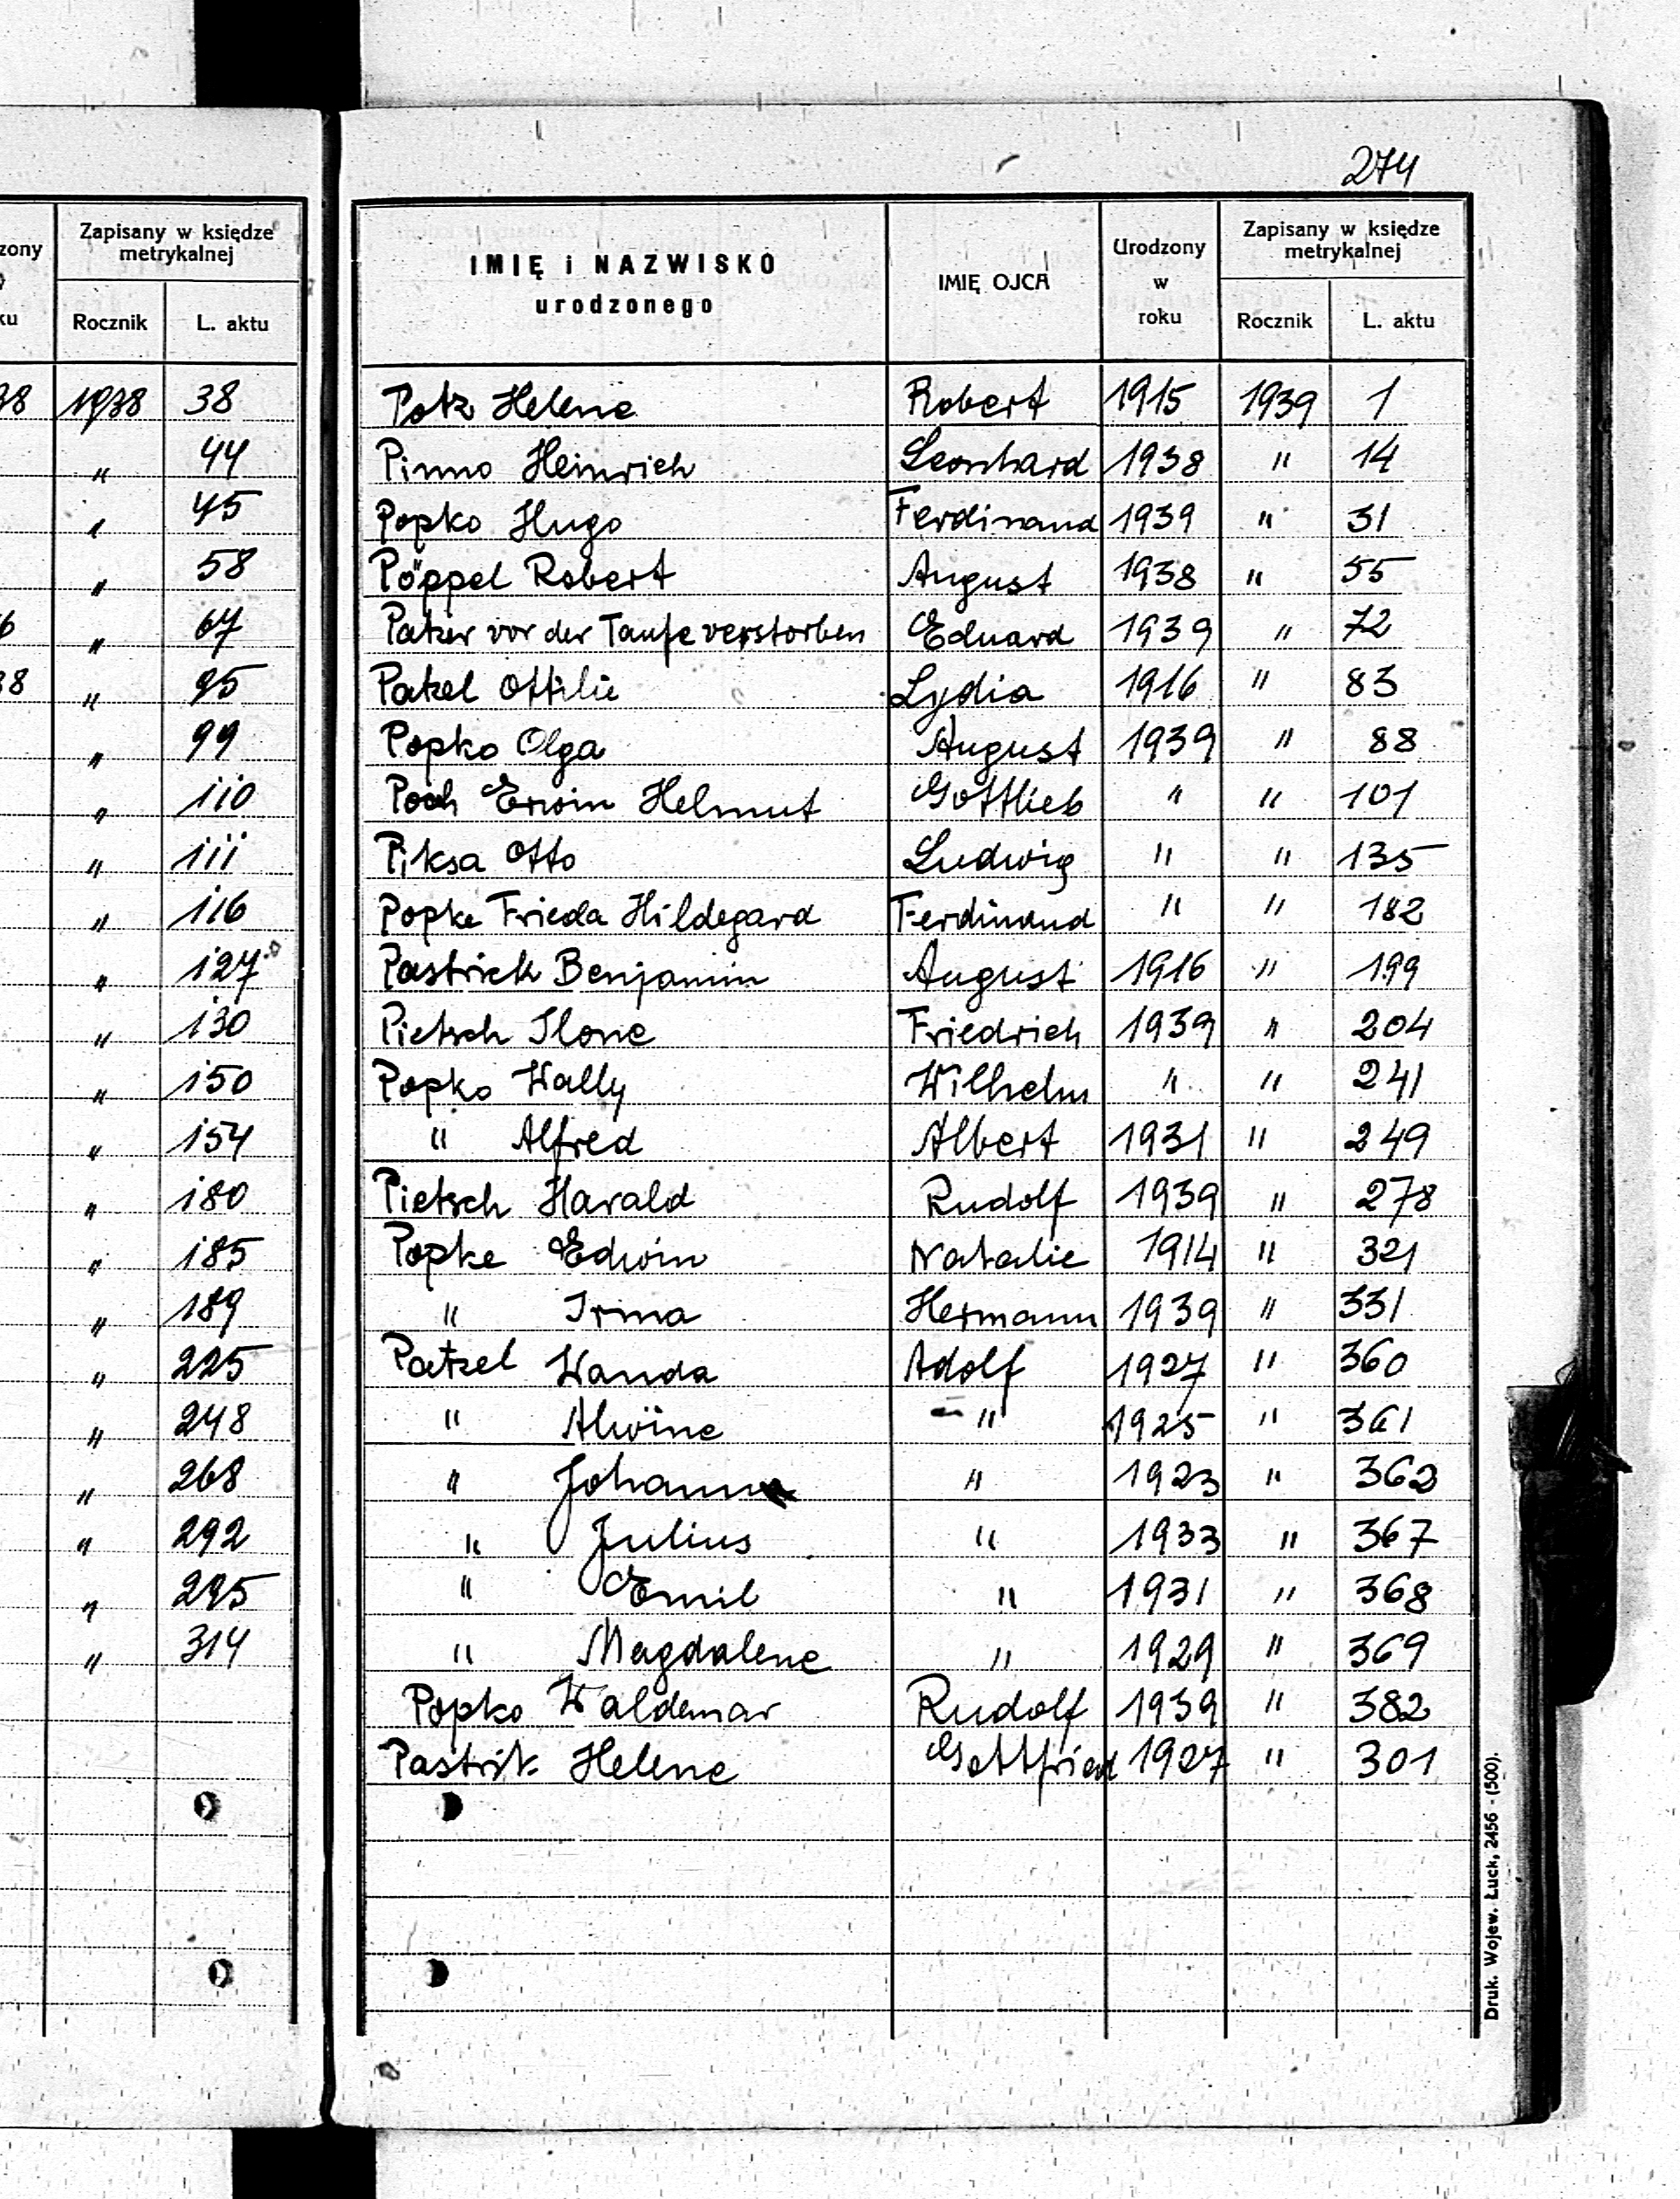 274
zony
ku
Zapisany w księdze
metrykalnej
Rocznik L. aktu
38 1938 38
" 44
" 45
" 58
6 " 67
38 " 95
" 99
" 110
" 111
" 116
" 127
" 130
" 150
" 154
" 180
" 185
" 189
" 225
" 248
" 268
" 292
" 295
" 314
IMIĘ i NAZWISKO
urodzonego
IMIĘ OJCA
Urodzony
w
roku
Zapisany w księdze
metrykalnej
Rocznik L. aktu
Potz Helene Robert 1915 1939 1
Pinno Heinrich Leonhard 1938 " 14
Popko Hugo Ferdinand 1939 " 31
Pöppel Robert August 1938 " 55
Patzer vor der Taufe verstorben Eduard 1939 " 72
Patzel Ottilie Lydia 1916 " 83
Popko Olga August 1939 " 88
Poch Erwin Helmut Gottlieb " " 101
Piksa Otto Ludwig " " 135
Popke Frieda Hildegard Ferdinand " " 182
Pastrick Benjamin August 1916 " 199
Pietsch Ilone Friedrich 1939 " 204
Popko Wally Wilhelm " " 241
" Alfred Albert 1931 " 249
Pietsch Harald Rudolf 1939 " 278
Popke Edwin Natalie 1914 " 321
" Irma Hermann 1939 " 331
Patzel Wanda Adolf 1927 " 360
" Alwine " 1925 " 361
" Johann " 1923 " 362
" Julius " 1933 " 367
" Emil " 1931 " 368
" Magdalene " 1929 " 369
Popko Waldemar Rudolf 1939 " 382
Pastrik Helene Gottfried 1927 " 301
Druk. Wojew. Łuck, 2456 - (500).